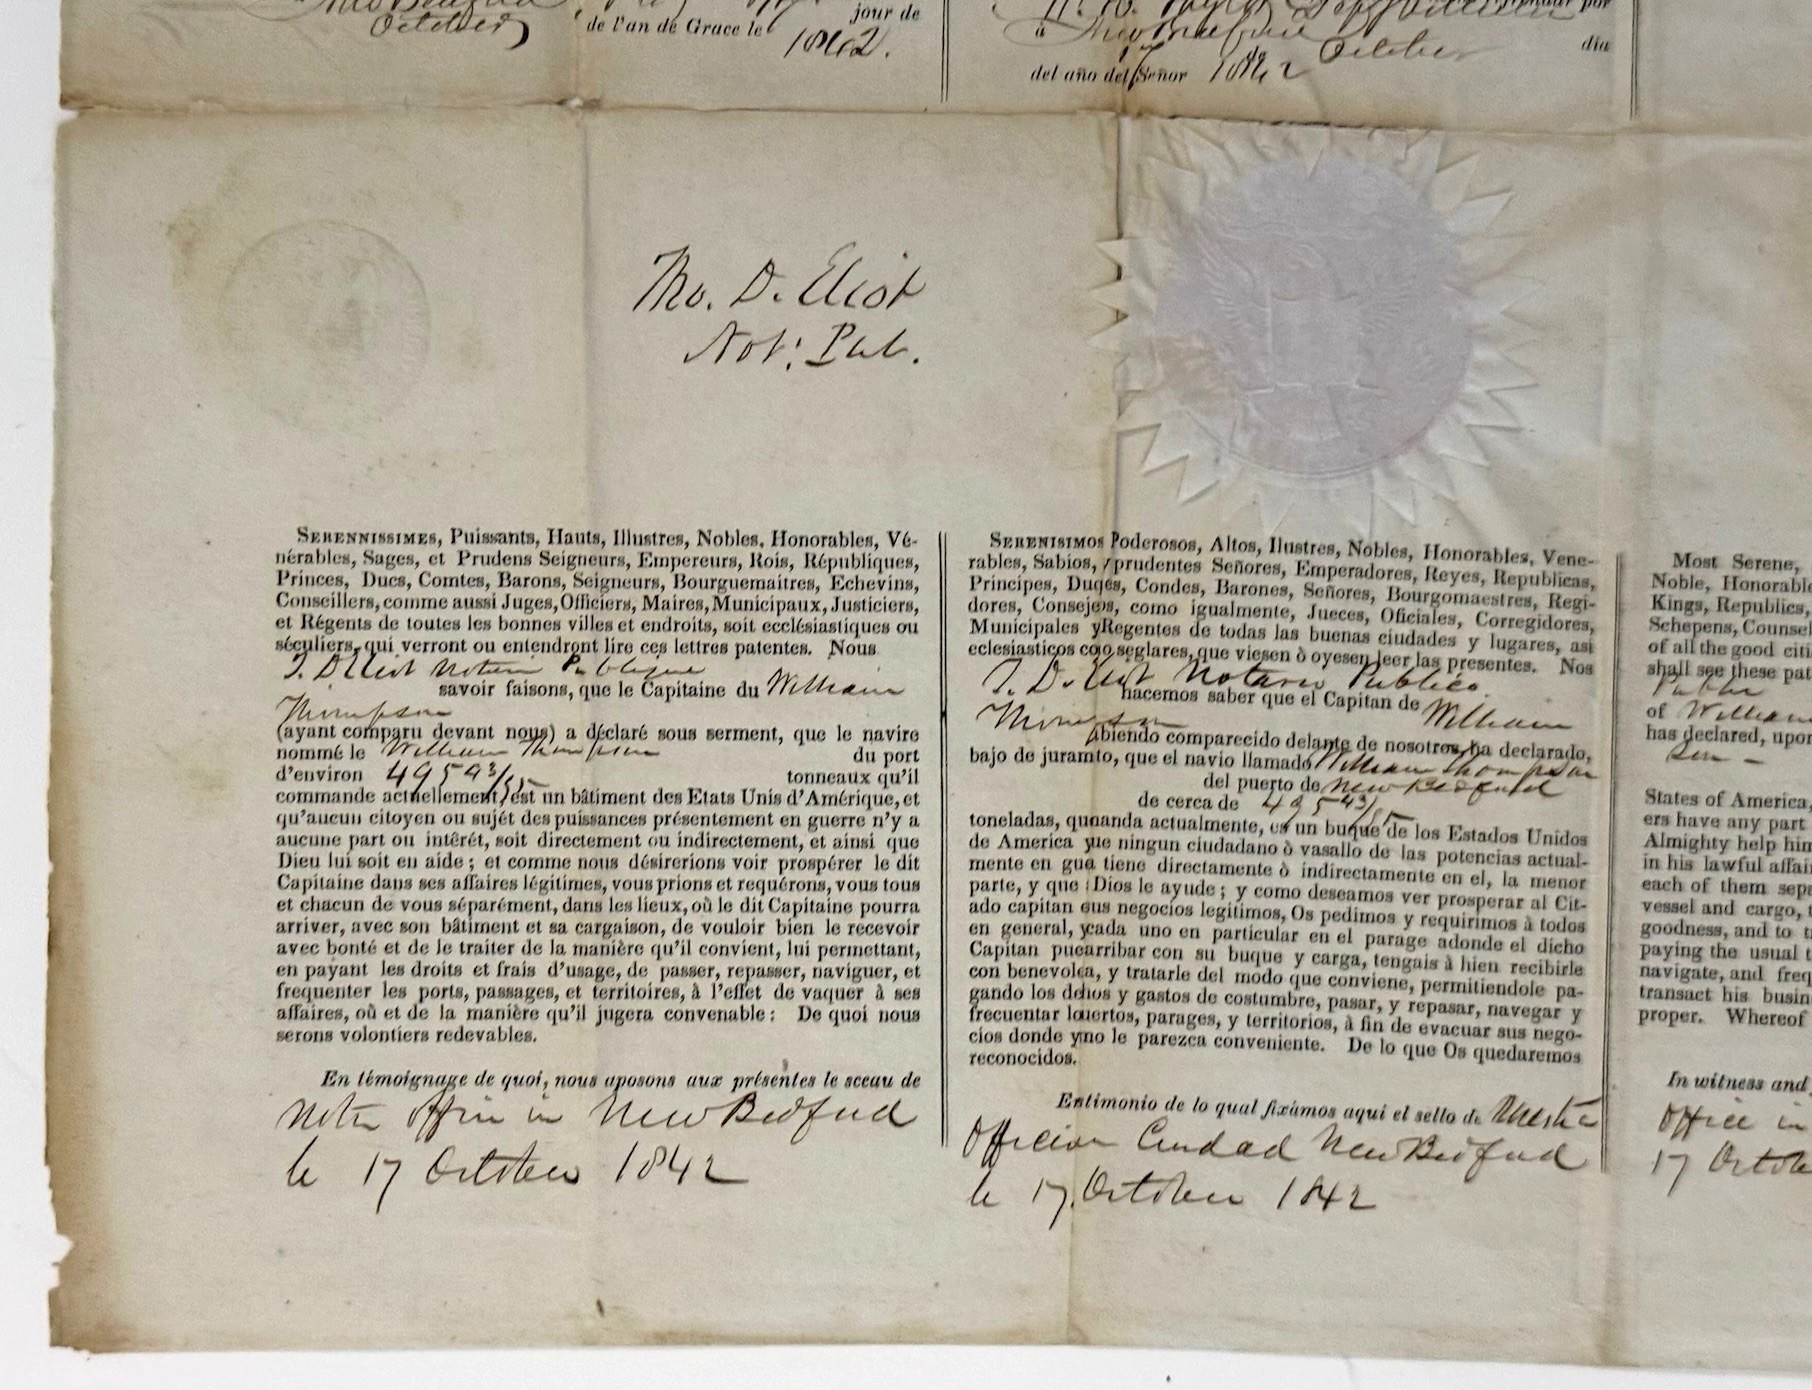 October
de l'an de Grace le
jour de
1842.
por
à
October
dia
de
del año del Señor 1842
Tho. D. Eliot
Not: Pub.
SERENNISSIMES, Puissants, Hauts, Illustres, Nobles, Honorables, Vé-
nérables, Sages, et Prudens Seigneurs, Empereurs, Rois, Républiques,
Princes, Ducs, Comtes, Barons, Seigneurs, Bourguemaitres, Echevins,
Conseillers, comme aussi Juges, Officiers, Maires, Municipaux, Justiciers,
et Régents de toutes les bonnes villes et endroits, soit ecclésiastiques ou
séculiers, qui verront ou entendront lire ces lettres patentes. Nous
T. D Eliot Notaire Publique
savoir faisons, que le Capitaine du William
Thompson
(ayant comparu devant nous) a déclaré sous serment, que le navire
nommé le William Thompson du port
d'environ 495 93/95 tonneaux qu'il
commande actuellement, est un bâtiment des Etats Unis d'Amérique, et
qu'aucun citoyen ou sujét des puissances présentement en guerre n'y a
aucune part ou intérêt, soit directement ou indirectement, et ainsi que
Dieu lui soit en aide ; et comme nous désirerions voir prospérer le dit
Capitaine dans ses affaires légitimes, vous prions et requérons, vous tous
et chacun de vous séparément, dans les lieux, où le dit Capitaine pourra
arriver, avec son bâtiment et sa cargaison, de vouloir bien le recevoir
avec bonté et de le traiter de la manière qu'il convient, lui permettant,
en payant les droits et frais d'usage, de passer, repasser, naviguer, et
frequenter les ports, passages, et territoires, à l'effet de vaquer à ses
affaires, où et de la manière qu'il jugera convenable : De quoi nous
serons volontiers redevables.
En témoignage de quoi, nous aposons aux présentes le sceau de
in New Bedford
le 17 October 1842
SERENISIMOS Poderosos, Altos, Ilustres, Nobles, Honorables, Vene-
rables, Sabios, y prudentes Señores, Emperadores, Reyes, Republicas,
Principes, Duques, Condes, Barones, Señores, Bourgomaestres, Regi-
dores, Consejeros, como igualmente, Jueces, Oficiales, Corregidores,
Municipales y Regentes de todas las buenas ciudades y lugares, asi
eclesiasticos cojo seglares, que viesen ò oyesen leer las presentes. Nos
T. D. Eliot Notario Publico.
hacemos saber que el Capitan de William
Thompson
abiendo comparecido delante de nosotros, ha declarado,
bajo de juramto, que el navio llamado William Thompson
del puerto de New Bedford
de cerca de 495 93/95
toneladas, qunanda actualmente, es un buque de los Estados Unidos
de America yue ningun ciudadano ò vasallo de las potencias actual-
mente en gua tiene directamente ò indirectamente en el, la menor
parte, y que Dios le ayude ; y como deseamos ver prosperar al Cit-
ado capitan sus negocios legitimos, Os pedimos y requirimos à todos
en general, ycada uno en particular en el parage adonde el dicho
Capitan puearribar con su buque y carga, tengais à bien recibirle
con benevolca, y tratarle del modo que conviene, permitiendole pa-
gando los dehos y gastos de costumbre, pasar, y repasar, navegar y
frecuentar louertos, parages, y territorios, à fin de evacuar sus nego-
cios donde yno le parezca conveniente. De lo que Os quedaremos
reconocidos.
Entimonio de lo qual fixàmos aqui el sello de
Ciudad New Bedford
le 17. October 1842
Most Serene,
Noble, Honorabl
Kings, Republics,
Schepens, Counsel
of all the good citi
shall see these pat
of William
has declared, upon
son -
States of America,
ers have any part
Almighty help him
in his lawful affai
each of them sepa
vessel and cargo, t
goodness, and to t
paying the usual t
navigate, and freq
transact his busin
proper. Whereof
In witness and
Office in
17 Octob